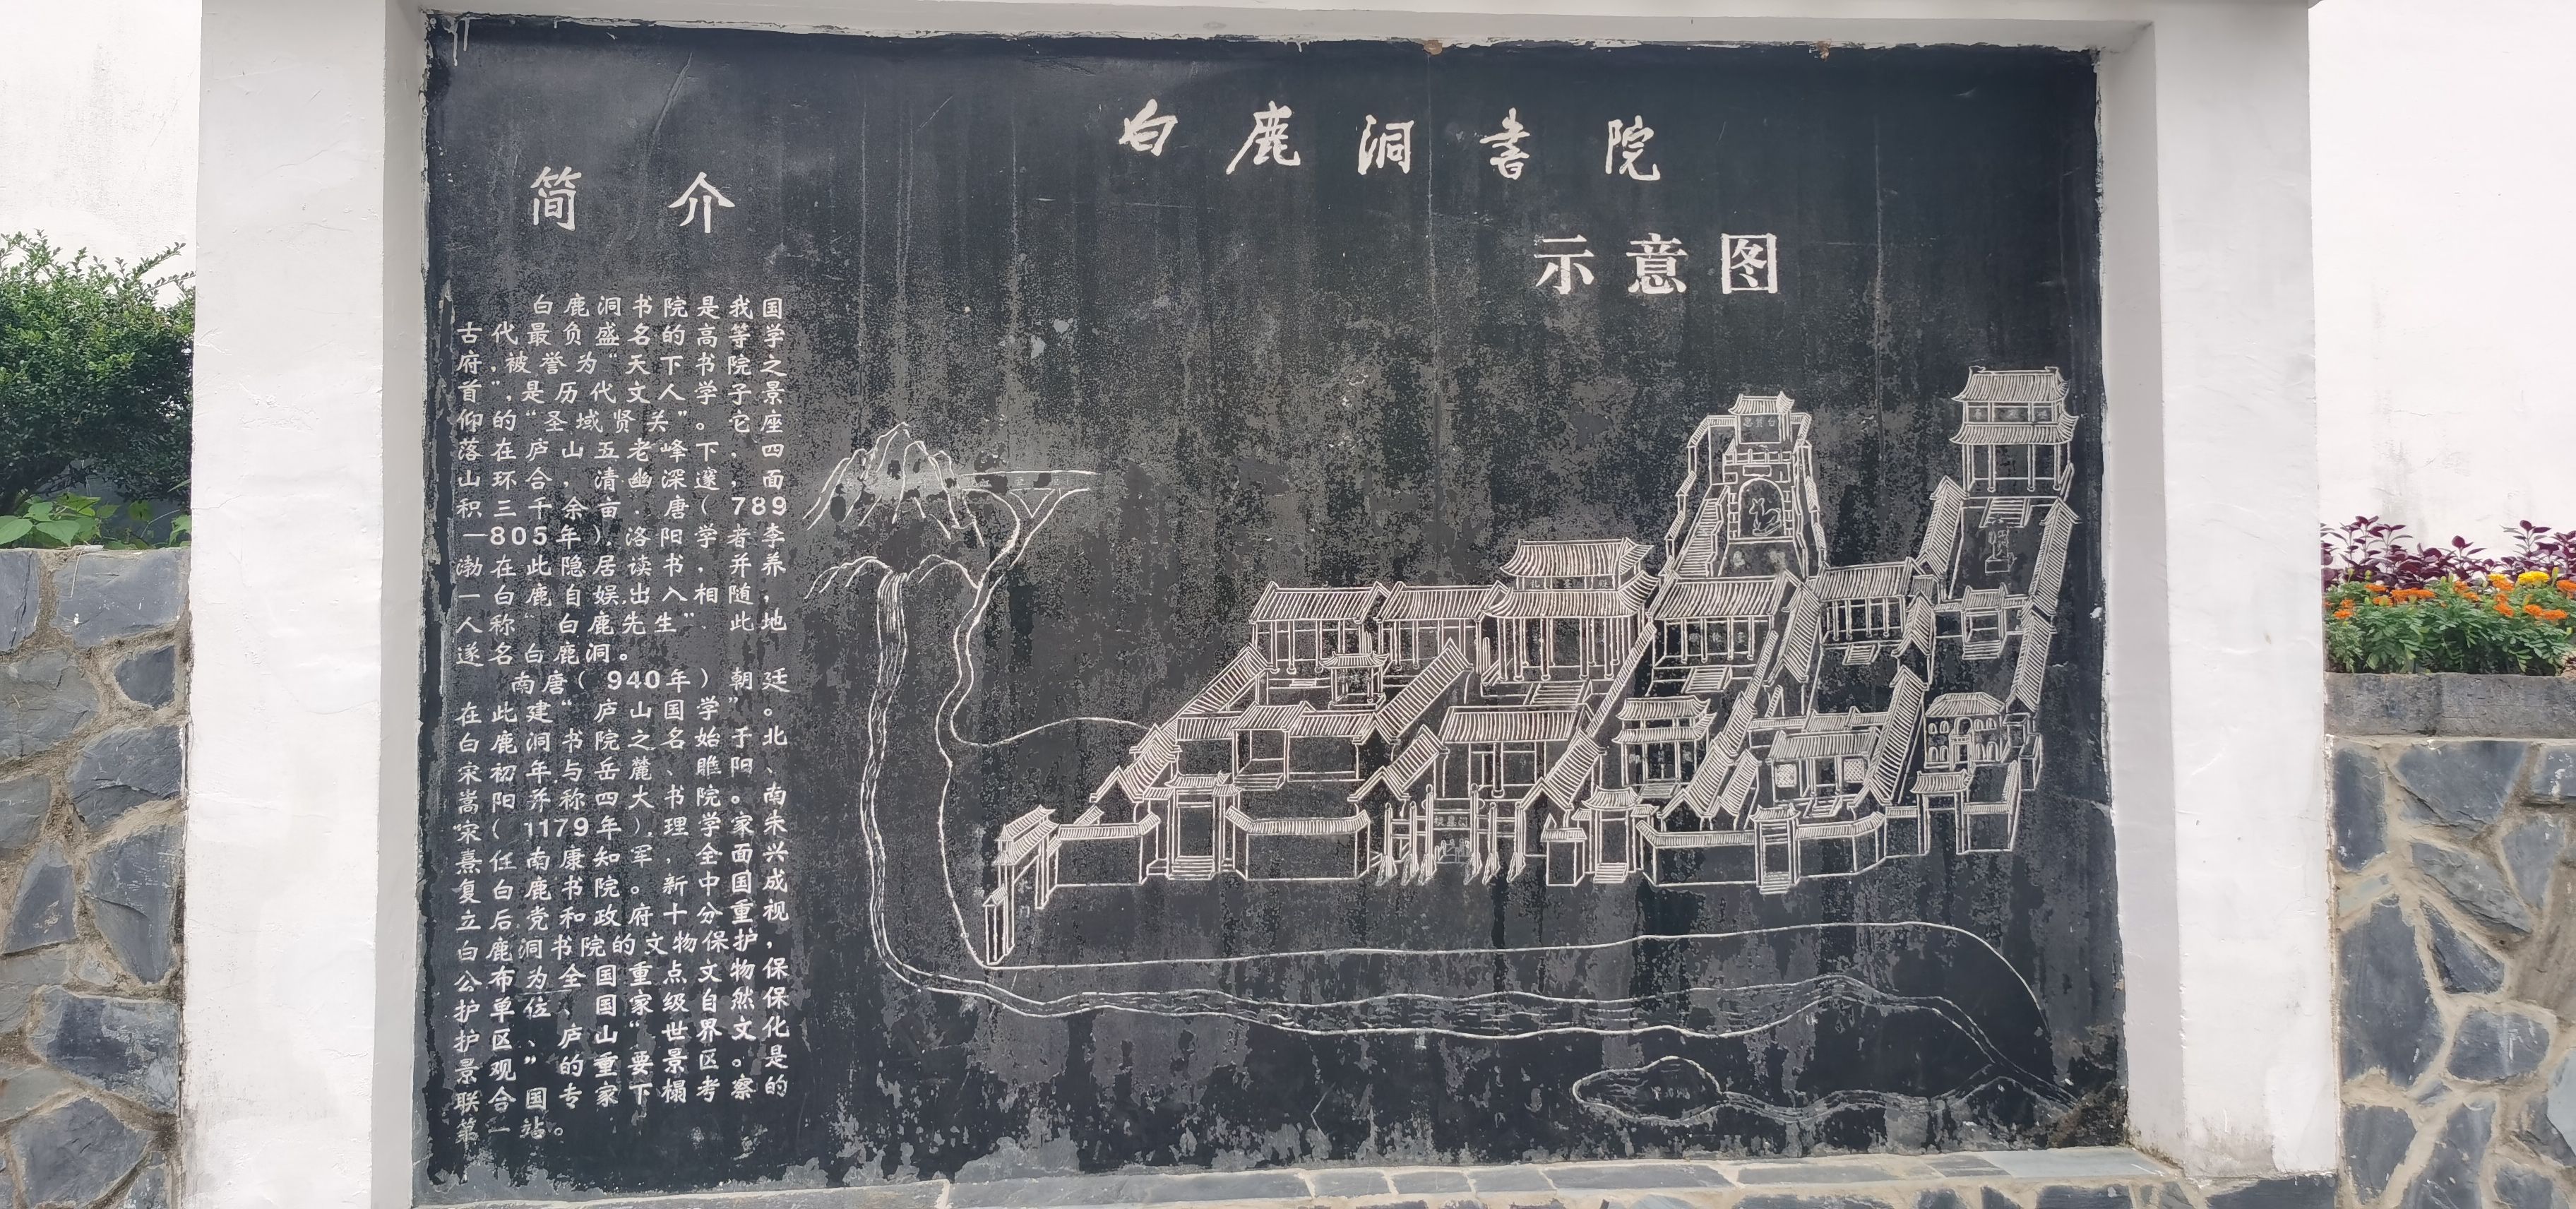 白鹿洞書院
示意图
简介
白鹿洞书院是我国
古代最负盛名的高等学
府,被誉为“天下书院之
首”,是历代文人学子景
仰的“圣域贤关”。它座
落在庐山五老峰下,四
山环合,清幽深邃,面
积三千余亩.唐(789
—805年).洛阳学者李
渤在此隐居读书,并养
一白鹿自娱.出入相随,
人称“白鹿先生”.此地
遂名白鹿洞。
南唐(940年)朝廷
在此建“庐山国学”。
白鹿洞书院之名始于北
宋初年.与岳麓、睢阳、
嵩阳并称四大书院。南
宋(1179年).理学家朱
熹任南康知军,全面兴
复白鹿书院。新中国成
立后.党和政府十分重视,
白鹿洞书院的文物保护,
公布为全国重点文物保
护单位、国家级自然保
护区、庐山“世界文化
景观”的重要景区。是
联合国专家下榻考察的
第一站。